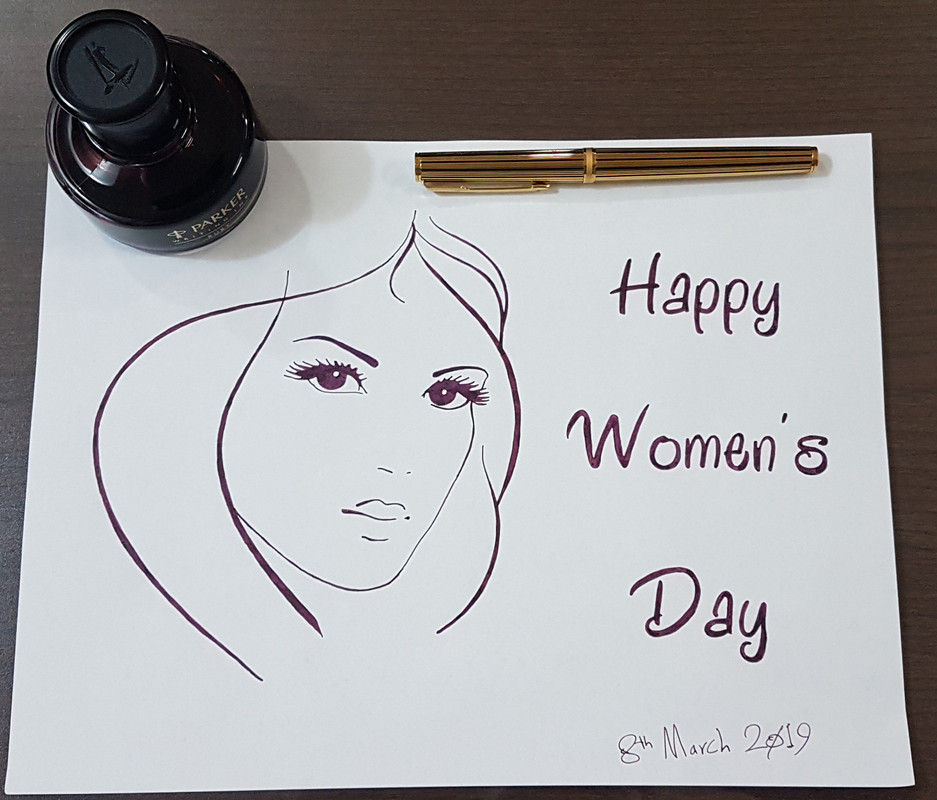 PARKER
Happy
Women's
Day
8th March 2019